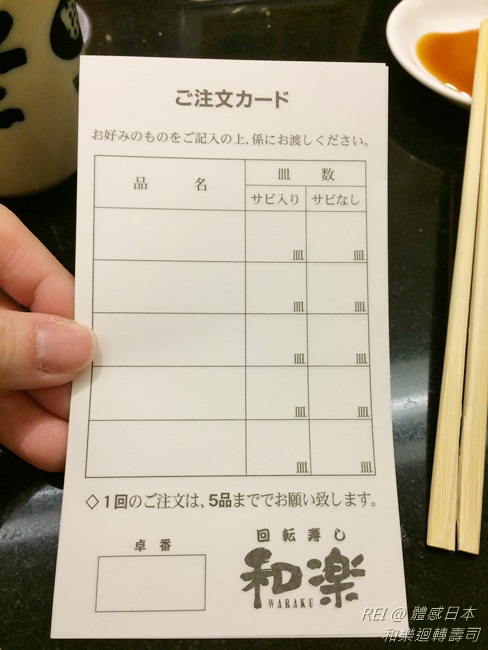 ご注文カード
お好みのものをご記入の上、係にお渡しください。
品 名
皿 数
サビ入り サビなし
皿 皿
皿 皿
皿 皿
皿 皿
皿 皿
◇1回のご注文は、5品まででお願い致します。
卓番
回転寿し
和楽
WARAKU
REI @ 體感日本
和樂迴轉壽司